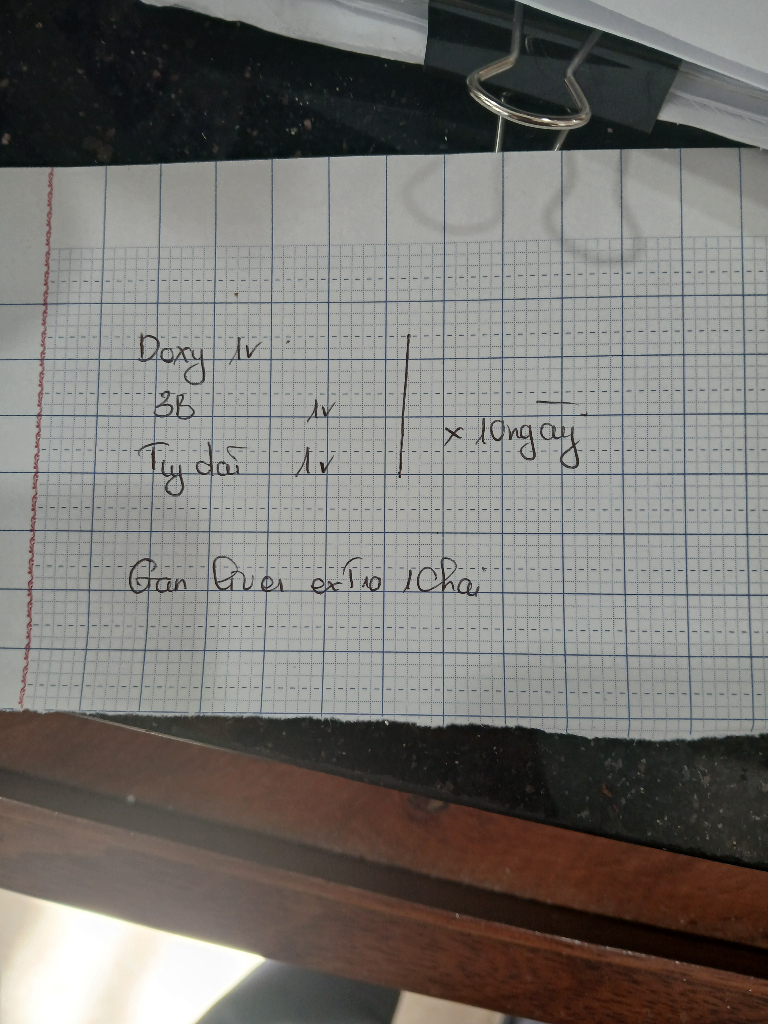 Doxy 1v
3B 1v
Tuy dai 1v
x 10ngay
Gan extra 1Chai